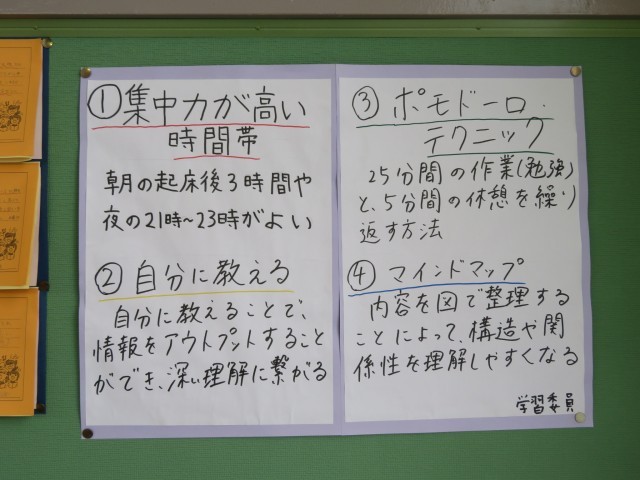 ①集中力が高い
時間帯
朝の起床後3時間や
夜の21時~23時がよい
②自分に教える
自分に教えることで、
情報をアウトプットすること
ができ、深い理解に繋がる
③ポモドーロ・
テクニック
25分間の作業(勉強)
と、5分間の休憩を繰り
返す方法
④マインドマップ
内容を図で整理する
ことによって、構造や関
係性を理解しやすくなる
学習委員